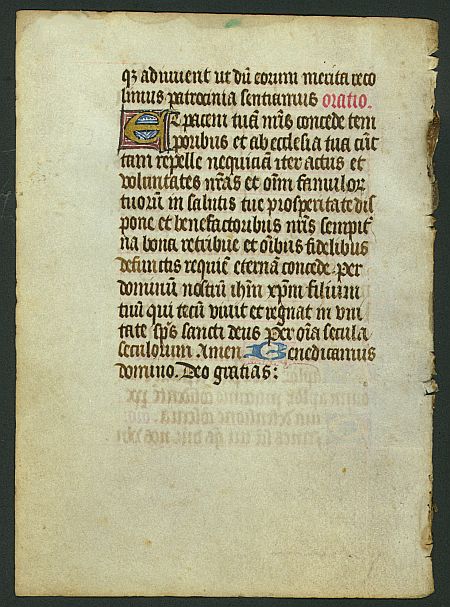 qz adiuvent ut dū eorum merita reco
limus patrocinia sentiamus oratio.
Et pacem tuā nr̄is concede tem
poribus et ab ecclesia tua cūc
tam repelle nequiciā iter actus et
voluntates nr̄as et om̄ famulor
tuorum in salutis tue prosperitate dis
pone et benefactoribus nr̄is sempit̄
na bona retribue et oībus fidelibus
defunctis requiē eternā concede. per
dominum nostrū ihm̄ xpm̄ filium
tuū qui tecū vivit et regnat in vni
tate sp̄s sancti deus Per om̄a secula
seculorum Amen. Benedicamus
domino. Deo gratias: